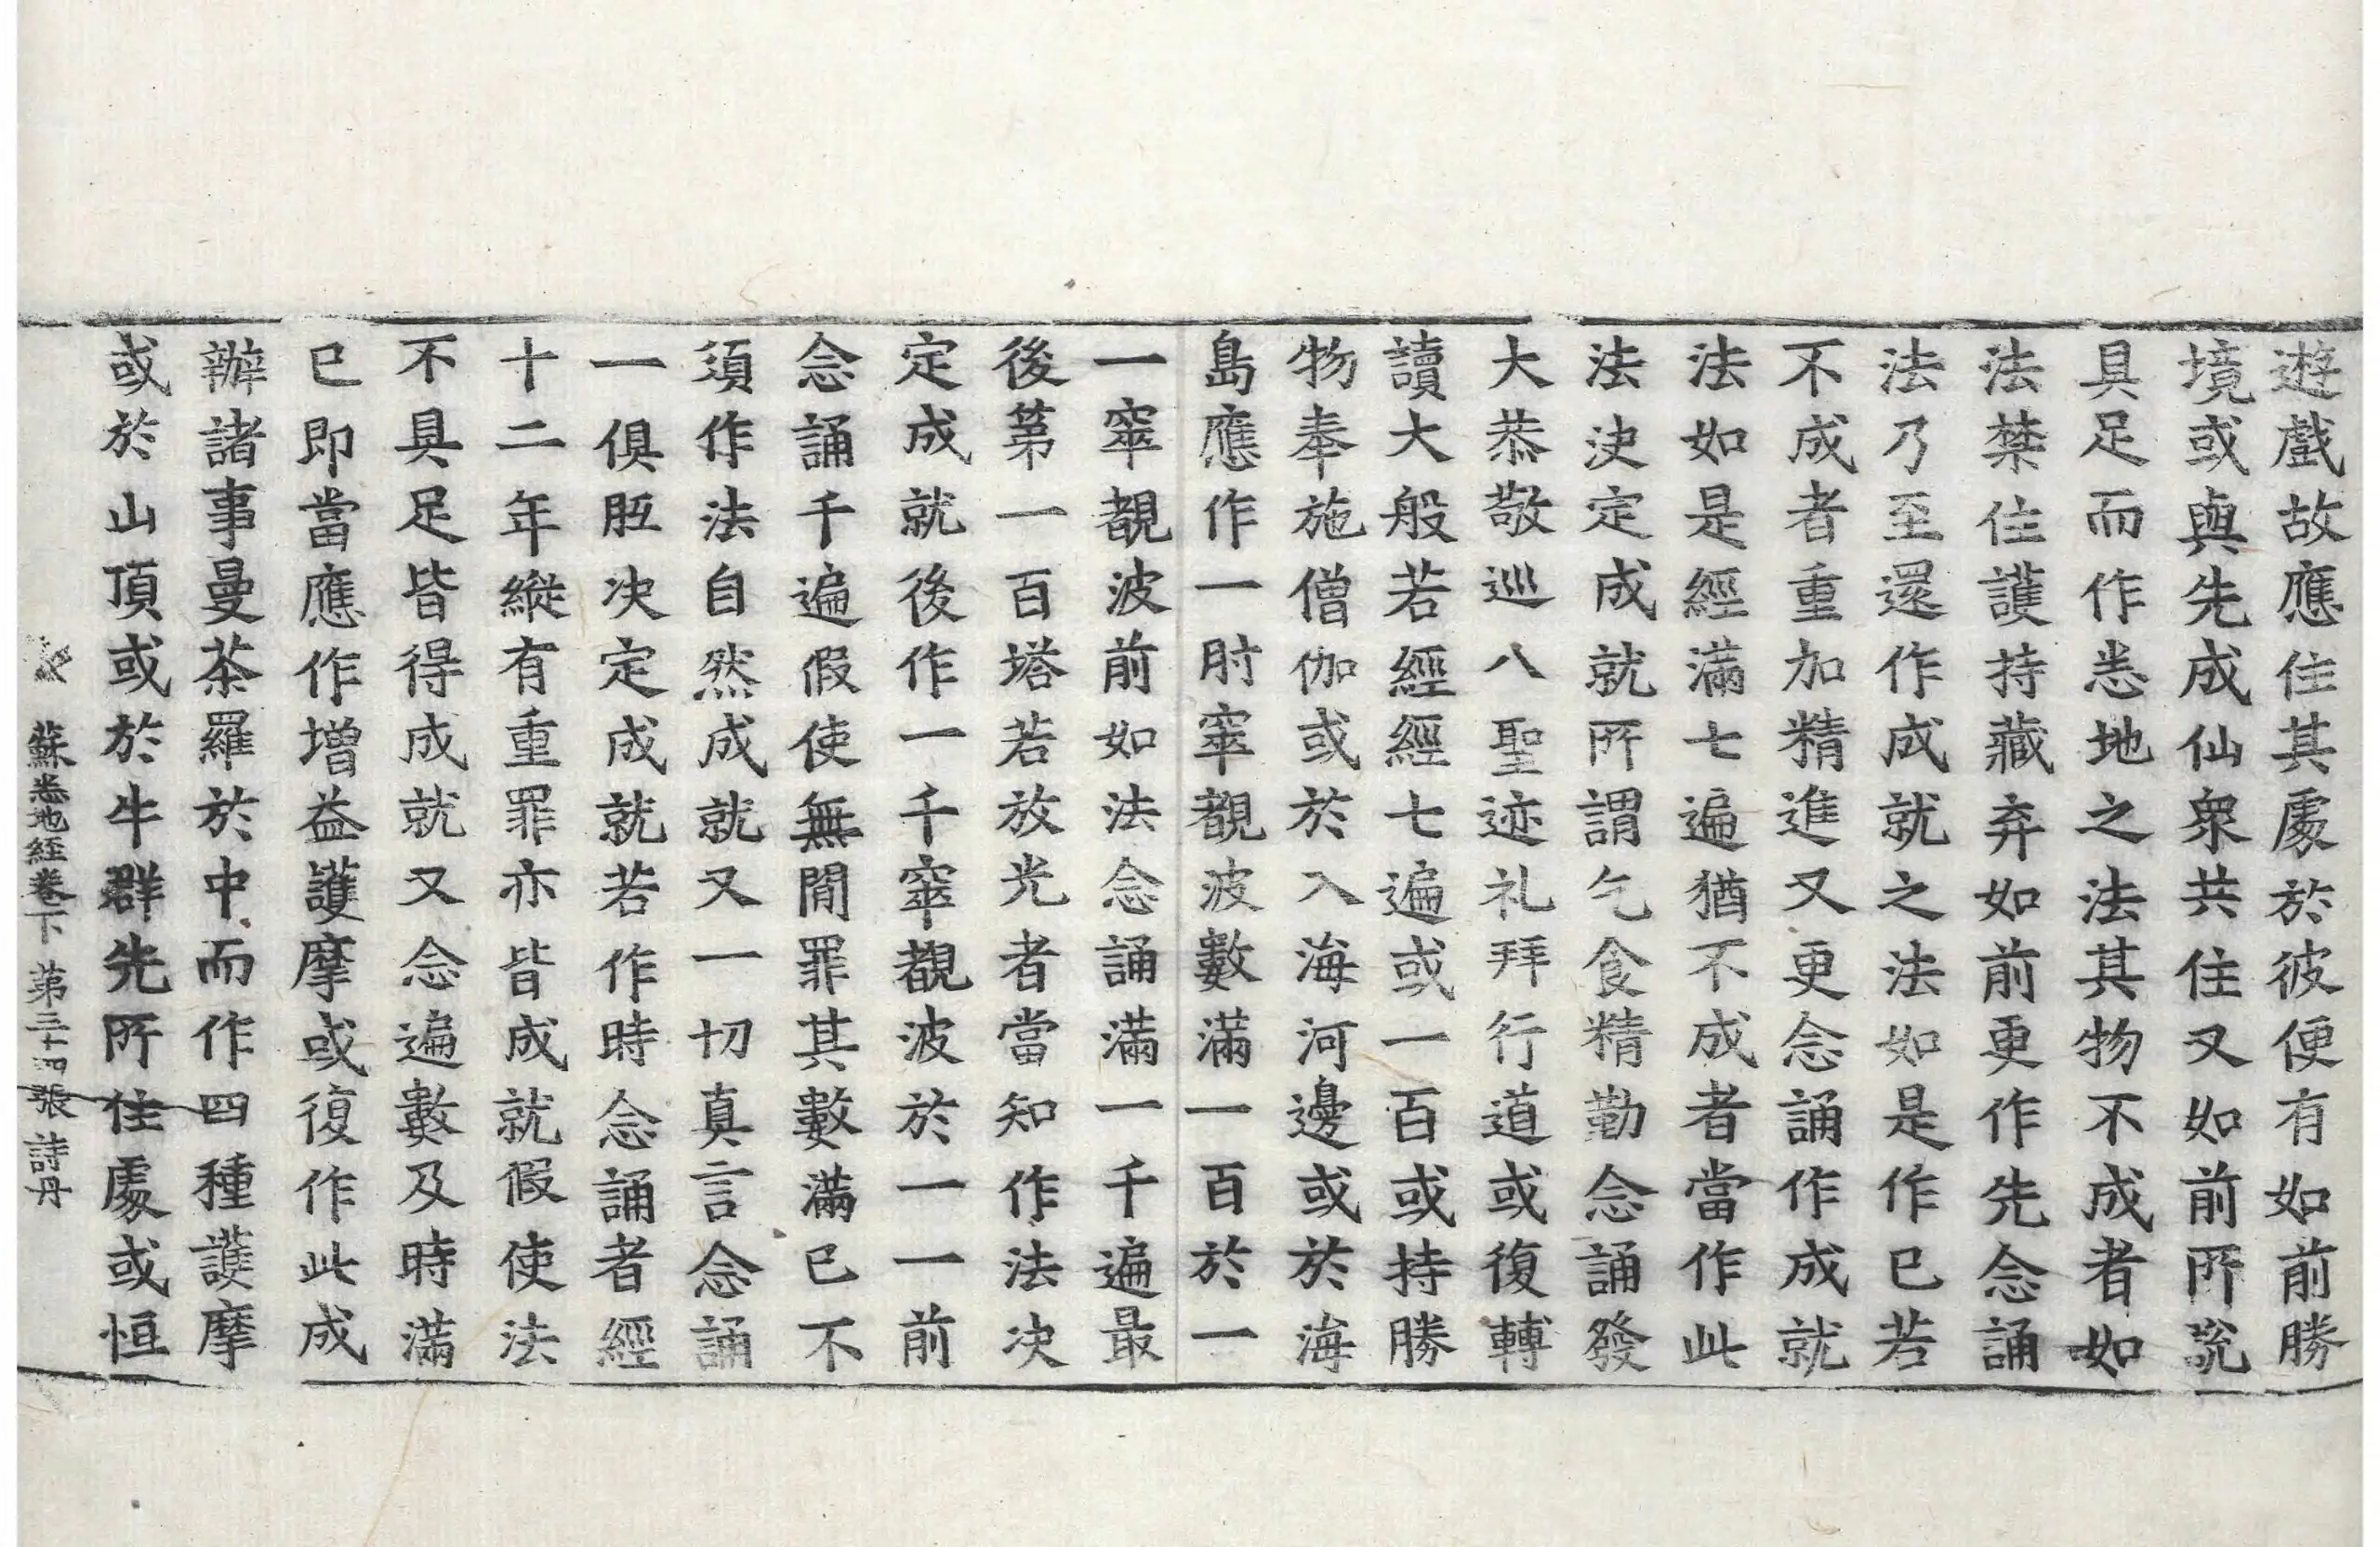 遊戲故應住其處於彼便有如前勝
境或與先成仙衆共住又如前所說
具足而作悉地之法其物不成者如
法禁住護持藏弃如前更作先念誦
法乃至還作成就之法如是作已若
不成者重加精進又更念誦作成就
法如是經滿七遍猶不成者當作此
法決定成就所謂乞食精勤念誦發
大恭敬巡八聖迹礼拜行道或復轉
讀大般若經經七遍或一百或持勝
物奉施僧伽或於入海河邊或於海
島應作一肘窣覩波數滿一百於一
一窣覩波前如法念誦滿一千遍最
後第一百塔若放光者當知作法決
定成就後作一千窣覩波於一一前
念誦千遍假使無間罪其數滿已不
須作法自然成就又一切真言念誦
一俱胝決定成就若作時念誦者經
十二年縱有重罪亦皆成就假使法
不具足皆得成就又念遍數及時滿
已即當應作增益護摩或復作此成
辦諸事曼茶羅於中而作四種護摩
或於山頂或於牛群先所住處或恒
蘇悉地経卷下 第三十四張 詩丹